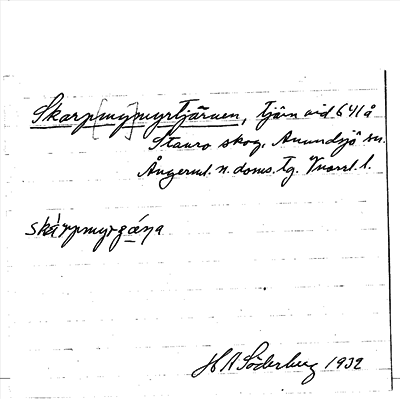 Skarp[my]myrtjärnen, tjärn vid. 641 å
Stavro skog. Anundsjö sn.
Ångerml. n. doms. tg. Vnorrl. l.
skàrpmyrgáŋa
H A Söderberg 1932